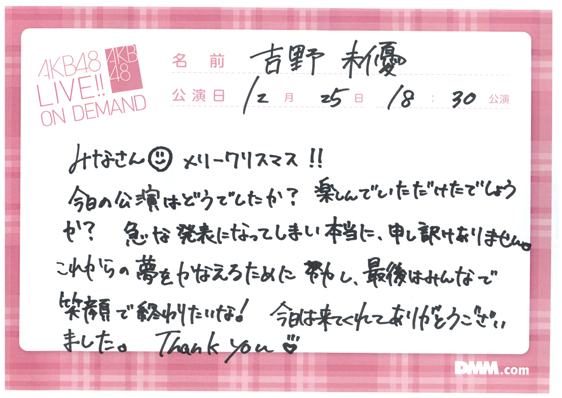 AKB48
LIVE!!
ON DEMAND
AKB
48
名前 吉野 未優
公演日 12月 25日 18:30公演
みなさん メリークリスマス!!
今日の公演はどうでしたか? 楽しんでいただけたでしょう
か? 急な発表になってしまい本当に、申し訳けありません。
これからの夢をかなえるために 努力し、最後はみんなで
笑顔で終わりたいな! 今日は来てくれてありがとうござい
ました。 Thank you
DMM.com